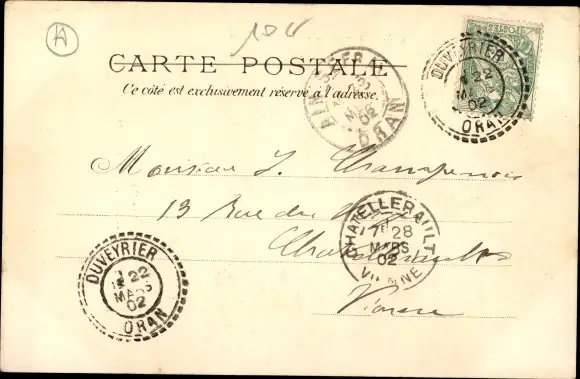 A
104
POSTES
CARTE POSTALE
Ce côté est exclusivement réservé à l'adresse.
DUVEYRIER
22
MARS
02
ORAN
MARS
02
ORAN
Monsieur J.
13 Rue du
Chatellerault
Vienne
CHATELLERAULT
7E 28
MARS
02
VIENNE
DUVEYRIER
22
MARS
02
ORAN